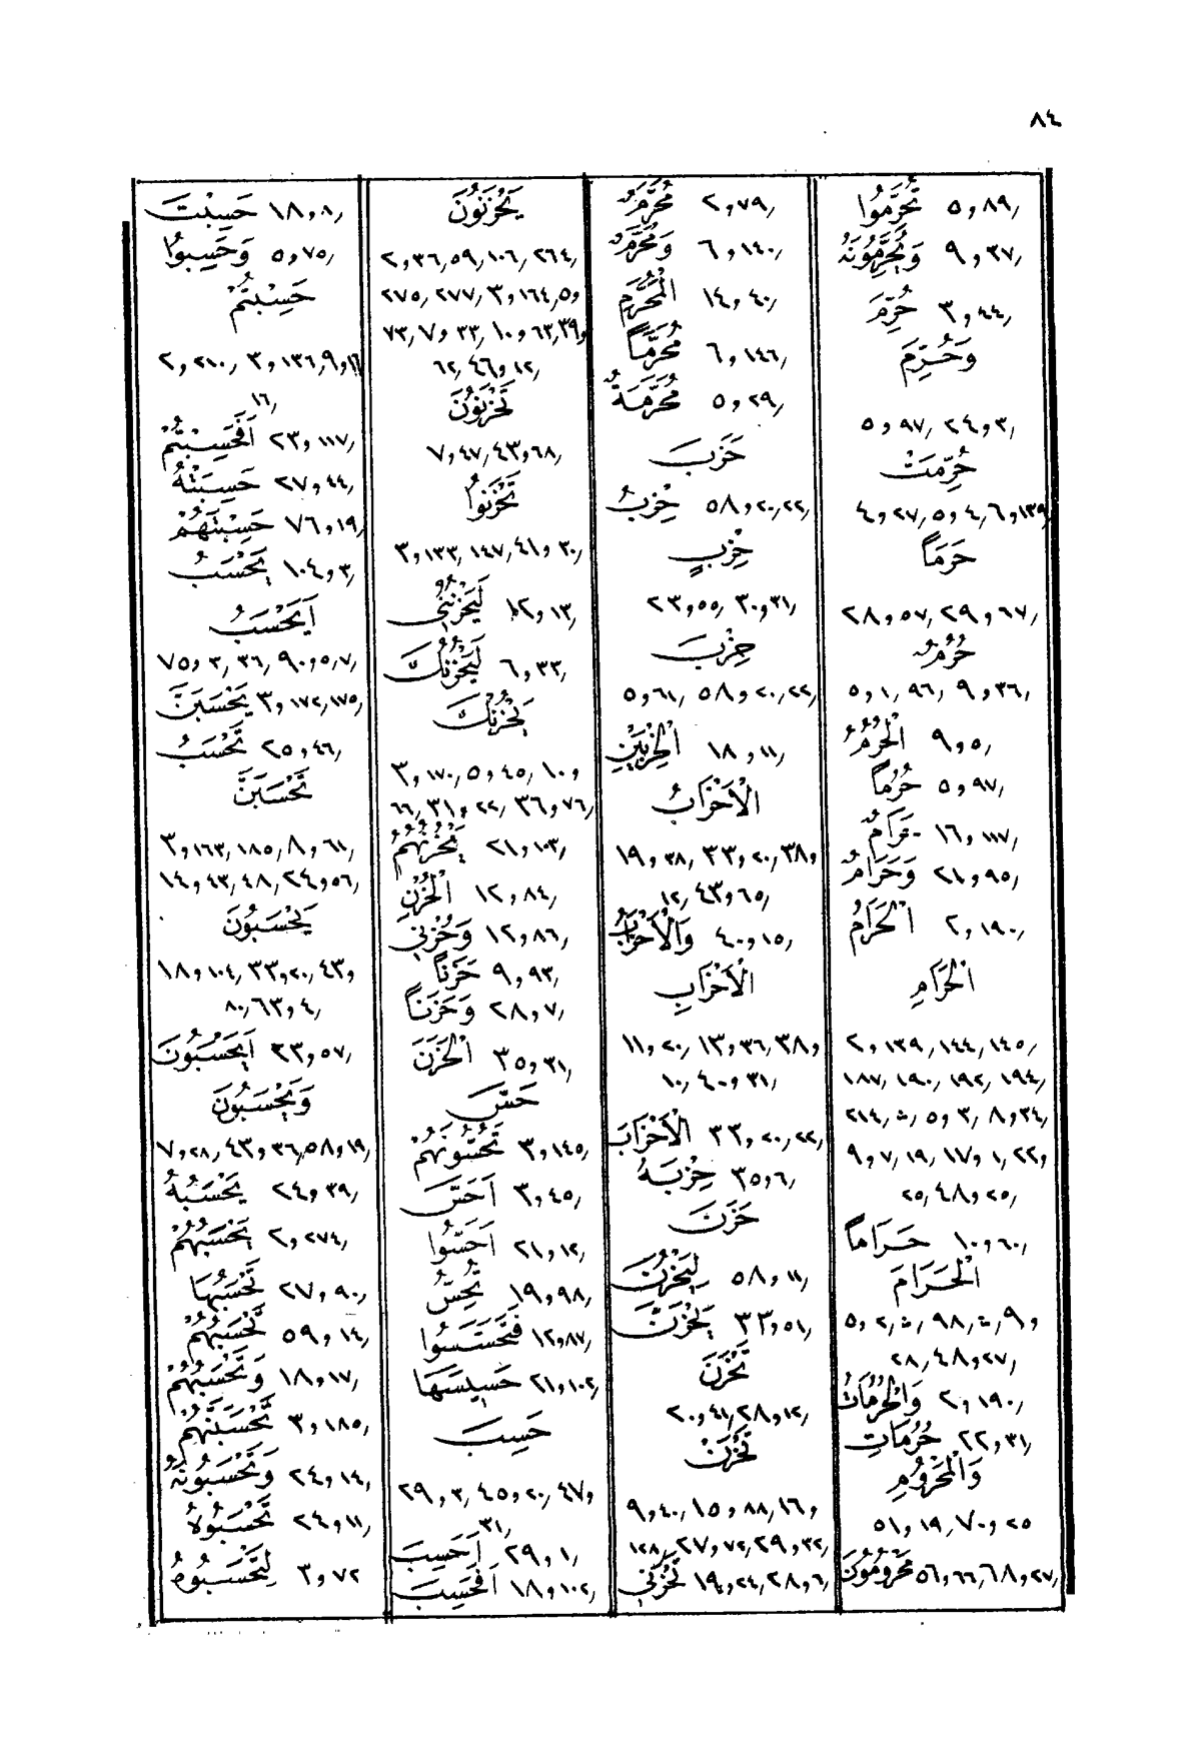 ٨٤
تُحَرِّمُوا ٥,٨٩/
وَيُحَرِّمُونَهُ ٩,٣٧/
حُرِّمَ ٣,٤٤/
وَحُرِّمَ
٥,٩٧/ ٢٤,٣/
حُرِّمَتْ
٤,٢٧/ ٥,٤/ ٦,١٣٩
حَرَمًا
٢٨,٥٧/ ٢٩,٦٧/
حُرُمٌ
٥,١/ ٩٦/ ٩,٣٦/
الْحُرُمُ ٩,٥/
حُرُمًا ٥,٩٧/
حَرَامٌ ١٦,١١٧/
وَحَرَامٌ ٢١,٩٥/
الْحَرَامُ ٢,١٩٠/
الْحَرَامِ
٢,١٣٩/ ١٤٤/ ١٤٥/
١٨٧/ ١٩٠/ ١٩٢/ ١٩٤/
٢١٤/ ٥,٣/ ٨,٣٤/
٩,٧/ ١٩/ ١٧,١/ ٢٢,
٢٥/ ٤٨,٢٥/
حَرَامًا ١٠,٦٠/
الْحَرَامَ
٥,٢/ ٩٨/ ٩,
٢٨/ ٤٨,٢٧/
وَالْحُرُمَاتُ ٢,١٩٠/
حُرُمَاتِ ٢٢,٣١/
وَالْمَحْرُومِ
٥١,١٩/ ٧٠,٢٥
مَحْرُومُونَ ٥٦,٦٦/ ٦٨,٢٧/
مُحَرَّمٌ ٢,٧٩/
وَمُحَرَّمٌ ٦,١٤٠/
الْمُحَرَّمِ ١٤,٤٠/
مُحَرَّمًا ٦,١٤٦/
مُحَرَّمَةٌ ٥,٢٩/
حَزَبَ
حِزْبُ ٥٨,٢٠/ ٢٢/
حِزْبٍ
٢٣,٥٥/ ٣٠,٣١/
حِزْبَ
٥,٦١/ ٥٨,٢٠/ ٢٢/
الْحِزْبَيْنِ ١٨,١١/
الْأَحْزَابُ
١٩,٣٨/ ٣٣,٢٠/ ٣٨,
١٢/ ٤٣,٦٥/
وَالْأَحْزَابُ ٤٠,١٥/
الْأَحْزَابِ
١١,٢٠/ ١٣,٣٦/ ٣٨,
١٠/ ٤٠,٣١/
الْأَحْزَابَ ٣٣,٢٠/ ٢٢/
حِزْبَهُ ٣٥,٦/
حَزَنَ
لِيَحْزُنَ ٥٨,١١/
يَحْزَنَّ ٣٣,٥١/
تَحْزَنَ
٢٠,٤١/ ٢٨,١٢/
تَحْزَنْ
٩,٤٠/ ١٥,٨٨/ ١٦,
١٢٨/ ٢٧,٧٢/ ٢٩,٣٢/
تَحْزَنِي ١٩,٢٤/ ٢٨,٦/
يَحْزَنُونَ
٢,٣٦/ ٥٩/ ١٠٦/ ٢٦٤/
٢٧٥/ ٢٧٧/ ٣,١٦٤/ ٥,
٧٣/ ٧,٣٣/ ١٠,٦٣/ ٣٩,
٦٢/ ٤٦,١٢/
تَحْزَنُونَ
٧,٤٧/ ٤٣,٦٨/
تَحْزَنُوا
٣,١٣٣/ ١٤٧/ ٤١,٣٠/
لَيَحْزُنُنِي ١٢,١٣/
لَيَحْزُنُكَ ٦,٣٣/
يَحْزُنْكَ
٣,١٧٠/ ٥,٤٥/ ١٠,
٦٦/ ٣١,٢٢/ ٣٦,٧٦/
يَحْزُنُهُمُ ٢١,١٠٣/
الْحُزْنِ ١٢,٨٤/
وَحُزْنِي ١٢,٨٦/
حَزَنًا ٩,٩٣/
وَحَزَنًا ٢٨,٧/
الْحَزَنَ ٣٥,٣١/
حَسَّ
تَحُسُّونَهُمْ ٣,١٤٥/
أَحَسَّ ٣,٤٥/
أَحَسُّوا ٢١,١٢/
تُحِسُّ ١٩,٩٨/
فَتَحَسَّسُوا ١٢,٨٧/
حَسِيسَهَا ٢١,١٠٢/
حَسِبَ
٢٩,٣/ ٤٥,٢٠/ ٤٧,
٣١/
أَحَسِبَ ٢٩,١/
أَفَحَسِبَ ١٨,١٠٢/
حَسِبْتَ ١٨,٨/
وَحَسِبُوا ٥,٧٥/
حَسِبْتُمْ
٢,٢١٠/ ٣,١٣٦/ ٩,١٦
١٦/
أَفَحَسِبْتُمْ ٢٣,١١٧/
حَسِبَتْهُ ٢٧,٤٤/
حَسِبْتَهُمْ ٧٦,١٩/
يَحْسَبُ ١٠٤,٣/
أَيَحْسَبُ
٧٥,٣/ ٣٦/ ٩٠,٥/ ٧/
يَحْسَبَنَّ ٣,١٧٢/ ١٧٥/
تَحْسَبُ ٢٥,٤٦/
تَحْسَبَنَّ
٣,١٦٣/ ١٨٥/ ٨,٦١/
١٤,٤٣/ ٤٨/ ٢٤,٥٦/
يَحْسَبُونَ
١٨,١٠٤/ ٣٣,٢٠/ ٤٣,
٨٠/ ٦٣,٤/
أَيَحْسَبُونَ ٢٣,٥٧/
وَيَحْسَبُونَ
٧,٢٨/ ٤٣,٣٦/ ٥٨,١٩/
يَحْسَبُهُ ٢٤,٣٩/
يَحْسَبُهُمُ ٢,٢٧٤/
تَحْسَبُهَا ٢٧,٩٠/
تَحْسَبُهُمْ ٥٩,١٤/
وَتَحْسَبُهُمْ ١٨,١٧/
تَحْسَبَنَّهُمْ ٣,١٨٥/
وَتَحْسَبُونَهُ ٢٤,١٤/
تَحْسَبُوهُ ٢٤,١١/
لِتَحْسَبُوهُ ٣,٧٢